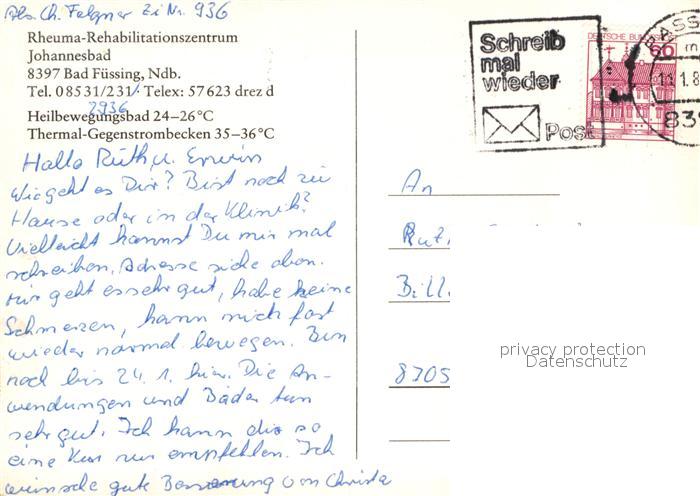 Abs. Ch. Felgner Zi Nr. 936
Rheuma-Rehabilitationszentrum
Johannesbad
8397 Bad Füssing, Ndb.
Tel. 08531/231 Telex: 57623 drez d
2936
Heilbewegungsbad 24–26°C
Thermal-Gegenstrombecken 35–36°C
Hallo Ruth u. Erwin
Wie geht es Dir? Bist noch zu
Hause oder in der Klinik?
Vielleicht kannst Du mir mal
schreiben, Adresse siehe oben.
Mir geht es sehr gut, habe keine
Schmerzen, kann mich fast
wieder normal bewegen. Bin
noch bis 24. 1. hier. Die An-
wendungen und Bäder tun
sehr gut. Ich kann dir so
eine Kur nur empfehlen. Ich
wünsche gute Besserung von Christa
Schreib
mal
wieder
Post
DEUTSCHE BUNDES
60
PASS
11.1.8
839
An
Rut
Bill
8705
privacy protection
Datenschutz